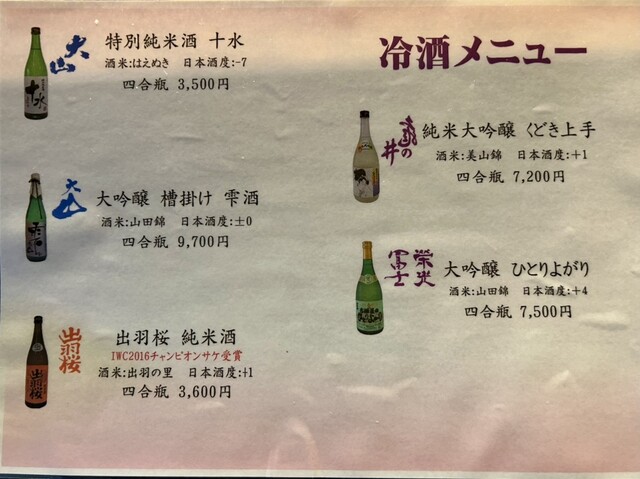 冷酒メニュー
亀の井
純米大吟醸 くどき上手
酒米:美山錦 日本酒度:+1
四合瓶 7,200円
栄光冨士
大吟醸 ひとりよがり
酒米:山田錦 日本酒度:+4
四合瓶 7,500円
大山
特別純米酒 十水
酒米:はえぬき 日本酒度:-7
四合瓶 3,500円
十水
大山
大吟醸 槽掛け 雫酒
酒米:山田錦 日本酒度:±0
四合瓶 9,700円
出羽桜
出羽桜 純米酒
IWC2016チャンピオンサケ受賞
酒米:出羽の里 日本酒度:+1
四合瓶 3,600円
出羽桜